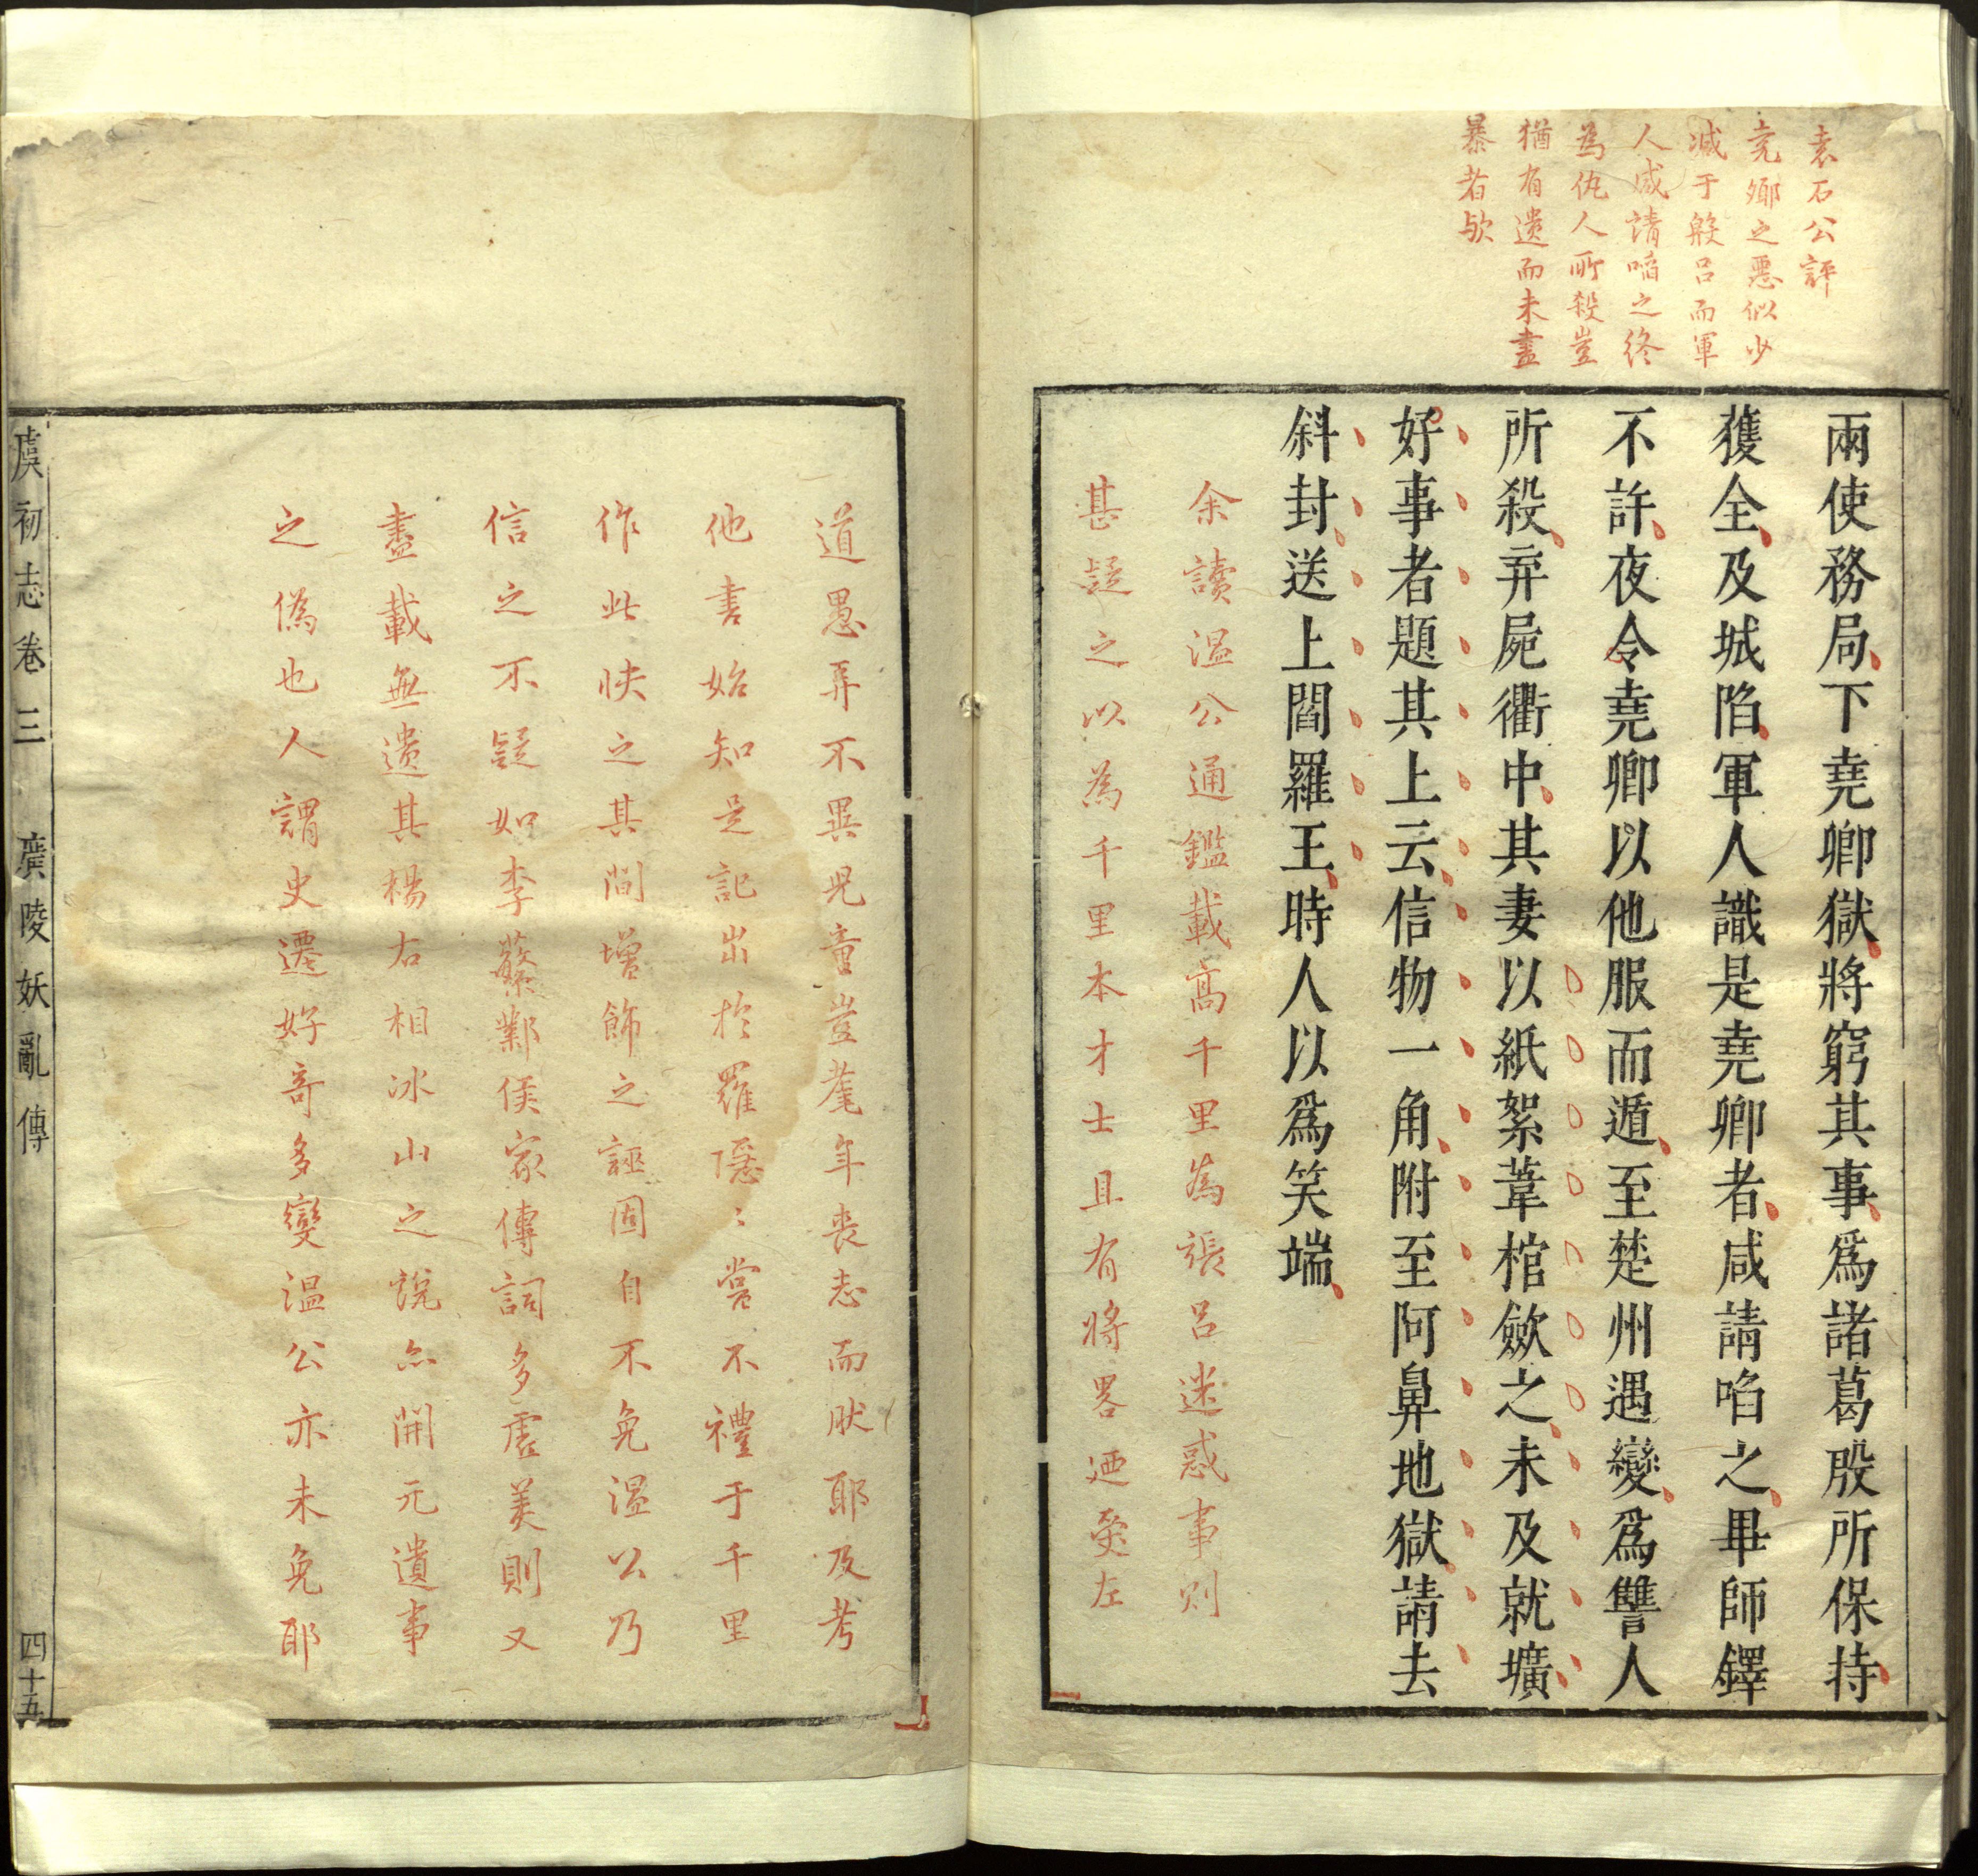 袁石公評
尭卿之惡似少
減于殷呂而軍
人咸請啗之終
為仇人所殺豈
猶有遺而未盡
暴者歟
兩使務局下堯卿獄將窮其事爲諸葛殷所保持
獲全及城陷軍人識是堯卿者咸請啗之畢師鐸
不許夜令堯卿以他服而遁至楚州遇變爲讐人
所殺弃屍衢中其妻以紙絮葦棺斂之未及就壙
好事者題其上云信物一角附至阿鼻地獄請去
斜封送上閻羅王時人以爲笑端
余讀溫公通鑑載高千里為張呂迷惑事則
甚疑之以為千里本才士且有將畧迺受左
道愚弄不異児童豈耄年喪志而肰耶及考
他書始知是記出於羅隱〻嘗不禮于千里
作此快之其間增飾之誣固自不免溫公乃
信之不疑如李蘩鄴侯家傳詞多虛美則又
盡載無遺其楊右相冰山之說亦開元遺事
之偽也人謂史遷好奇多變溫公亦未免耶
虞初志卷三 廣陵妖亂傳 四十五